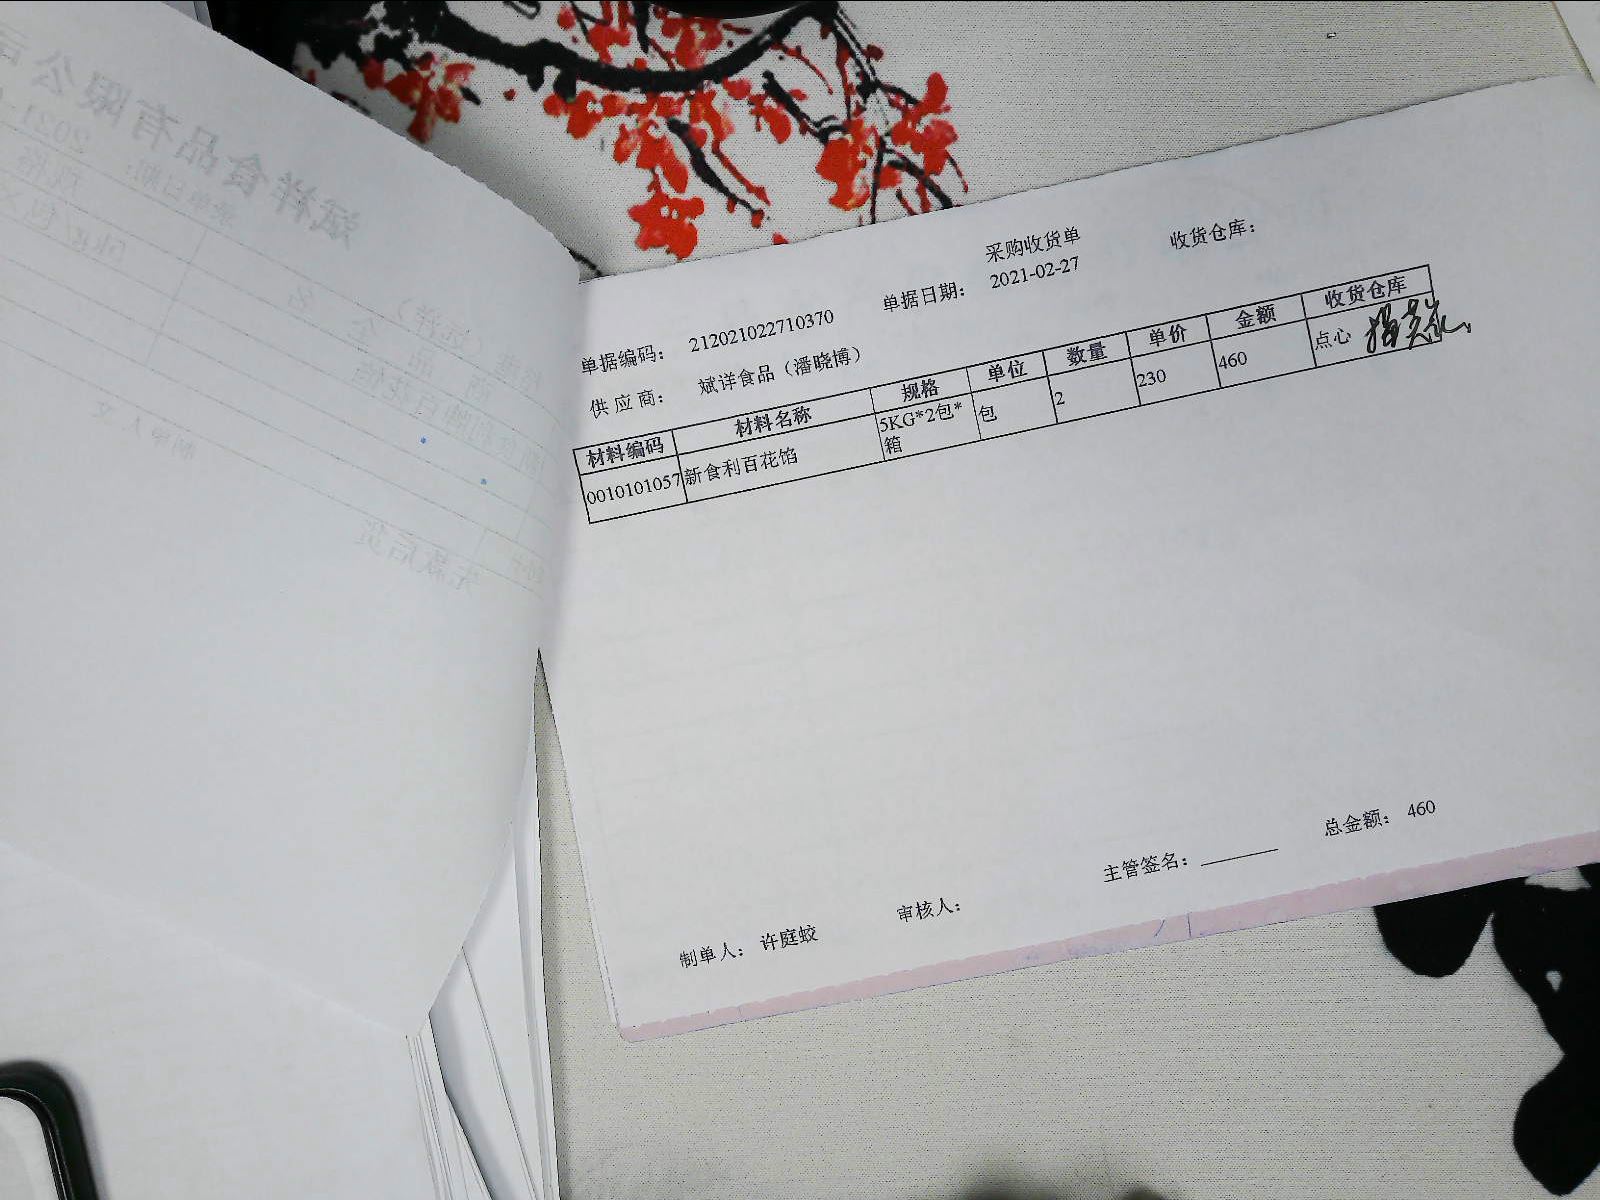 采购收货单
单据编码: 212021022710370 单据日期: 2021-02-27 收货仓库:
供应商: 斌详食品（潘晓博）
材料编码 材料名称 规格 单位 数量 单价 金额 收货仓库
0010101057 新食利百花馅 5KG*2包* 包 2 230 460 点心
箱
制单人: 许庭蛟 审核人: 主管签名: 总金额: 460
斌祥食品有限公司
先款后货